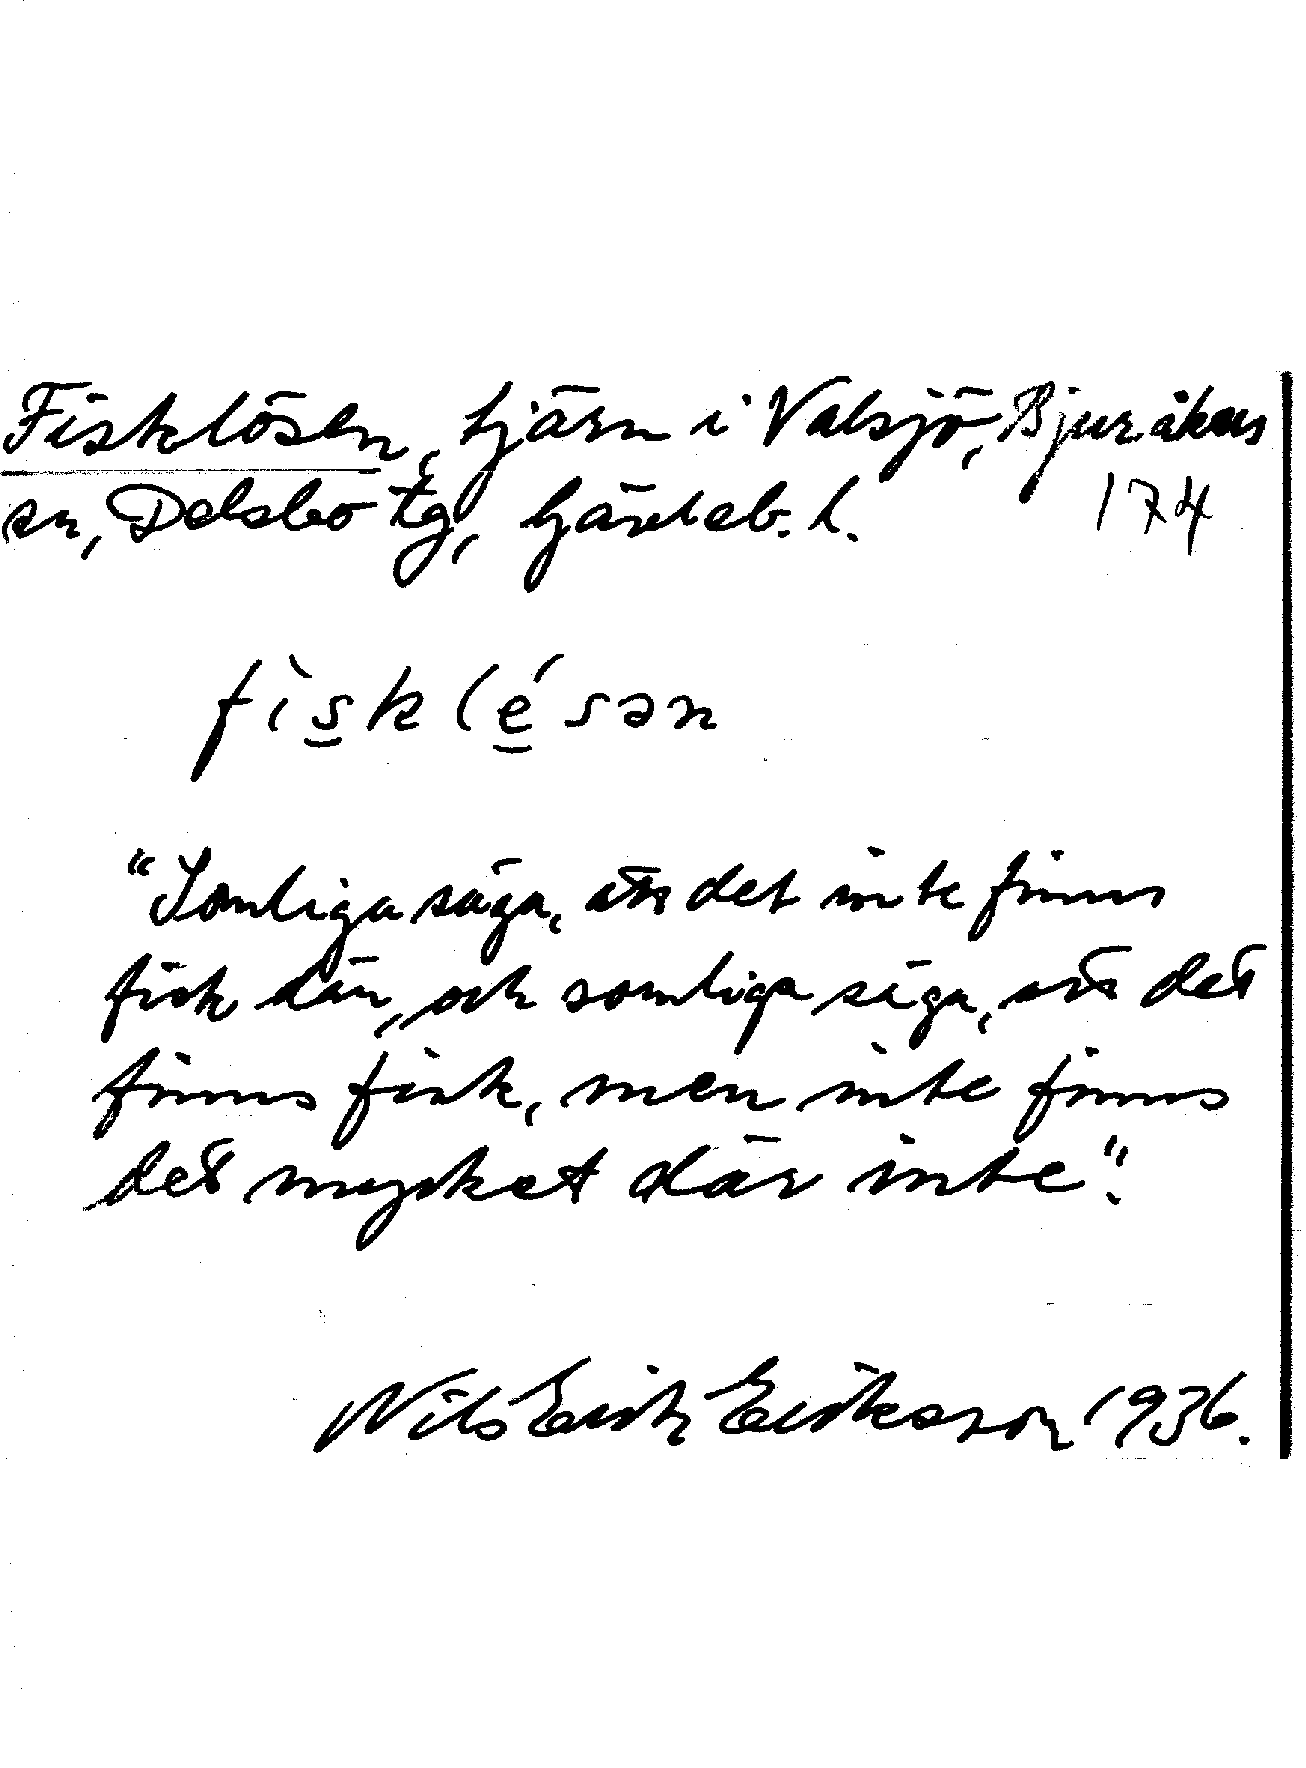 Fisklösen, tjärn i Valsjö, Bjuråkers
sn, Delsbo tg, Gävleb. l.
174
fìs̲klé̲sən
"Somliga säga, att det inte finns
fisk där, och somliga säga, att det
finns fisk, men inte finns
det mycket där inte".
Nils Erik Eriksson 1936.